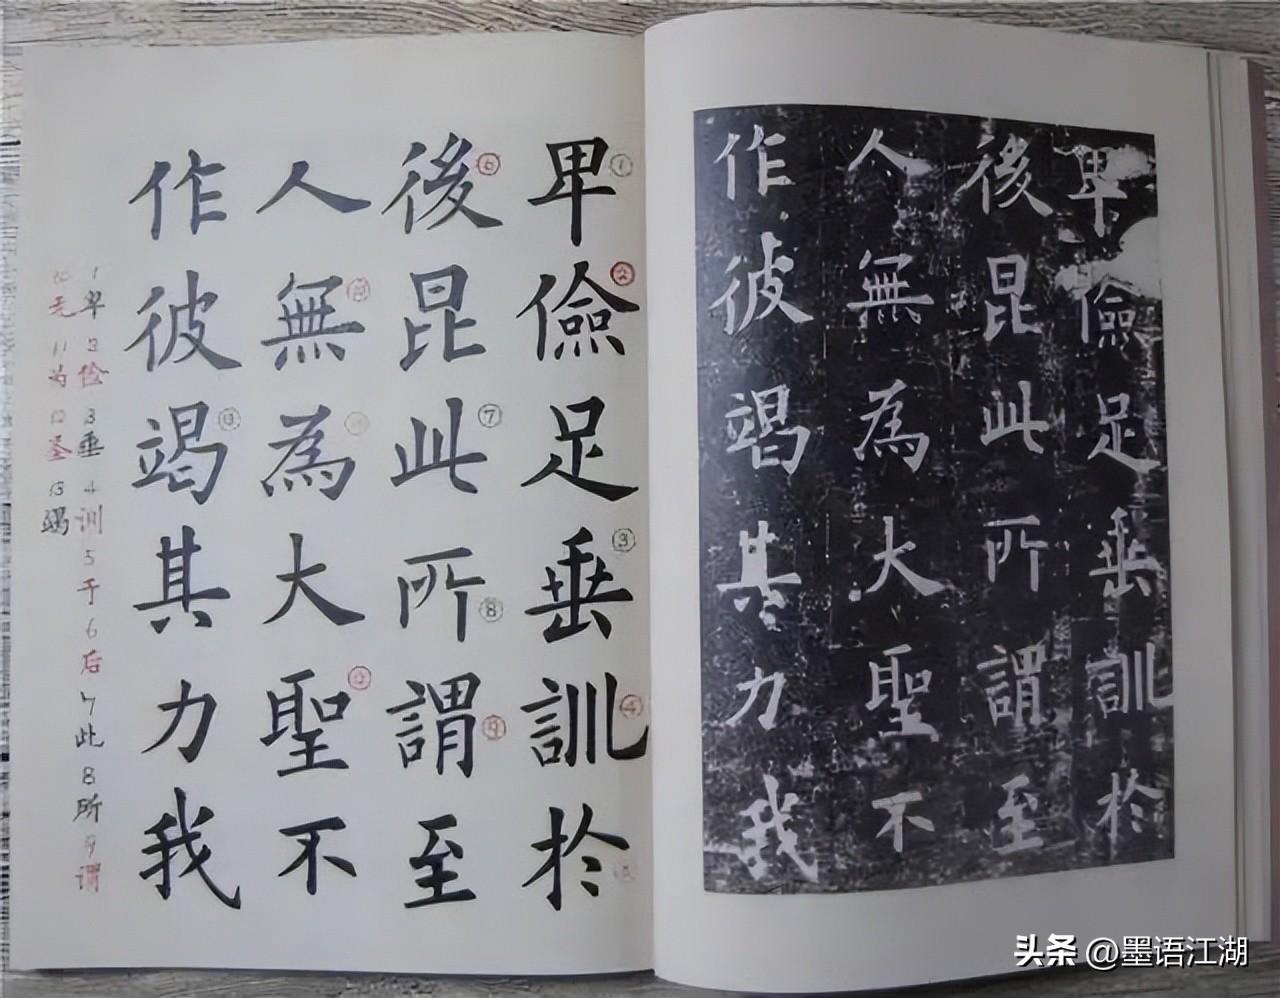 卑儉足垂訓於
後昆此所謂至
人無為大聖不
作彼竭其力我
1卑2俭3垂4训5于6后7此8所9谓
10无11为12圣13竭
卑儉足垂訓於
後昆此所謂至
人無為大聖不
作彼竭其力我
头条 @墨语江湖